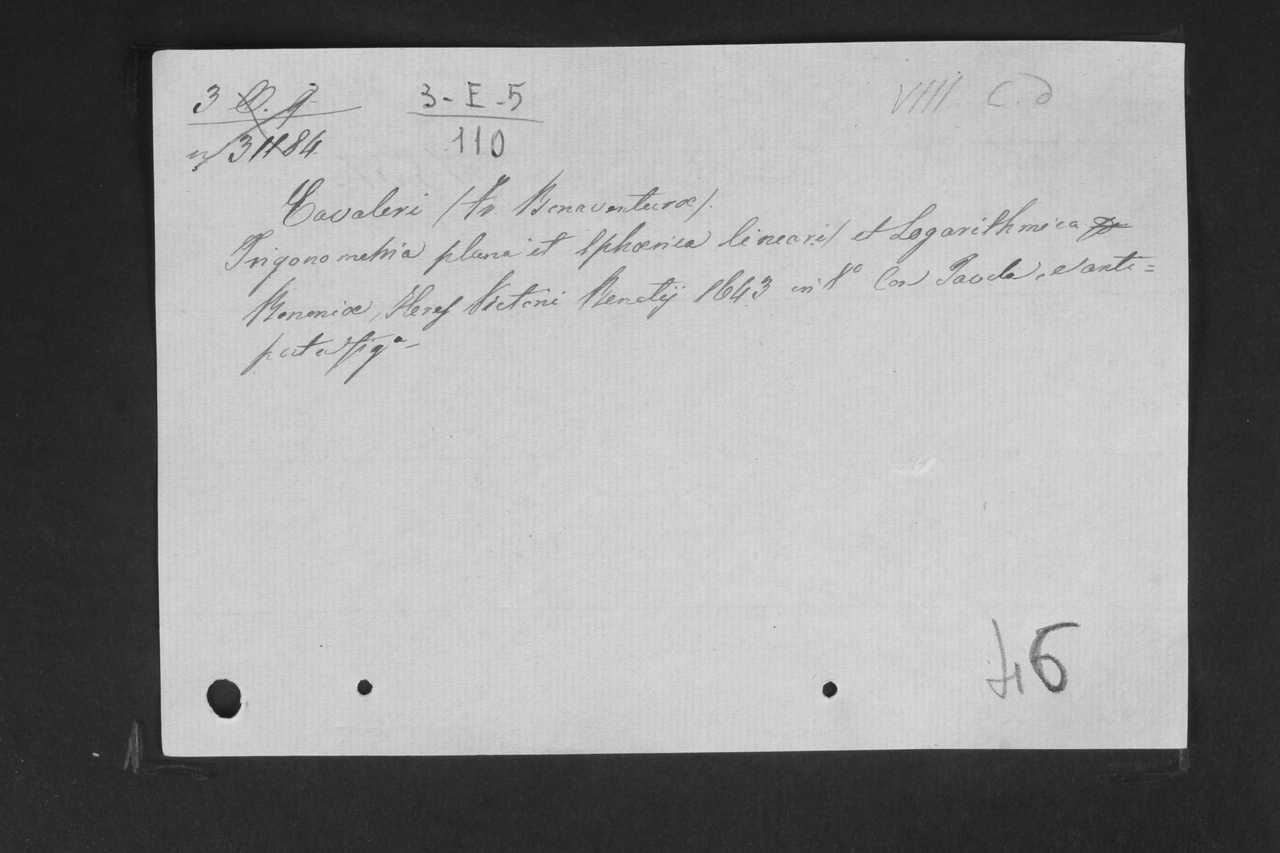 3 3-E-5 VIIII C. d
110
Cavaleri (Fr. Bonaventuræ).
Trigonometria plana et Sphærica linearis et Logarithmica
Bononiæ, Hered Victorii Benatij 1643 in 4° Con Tavole, e anti=
porta fig.a
46